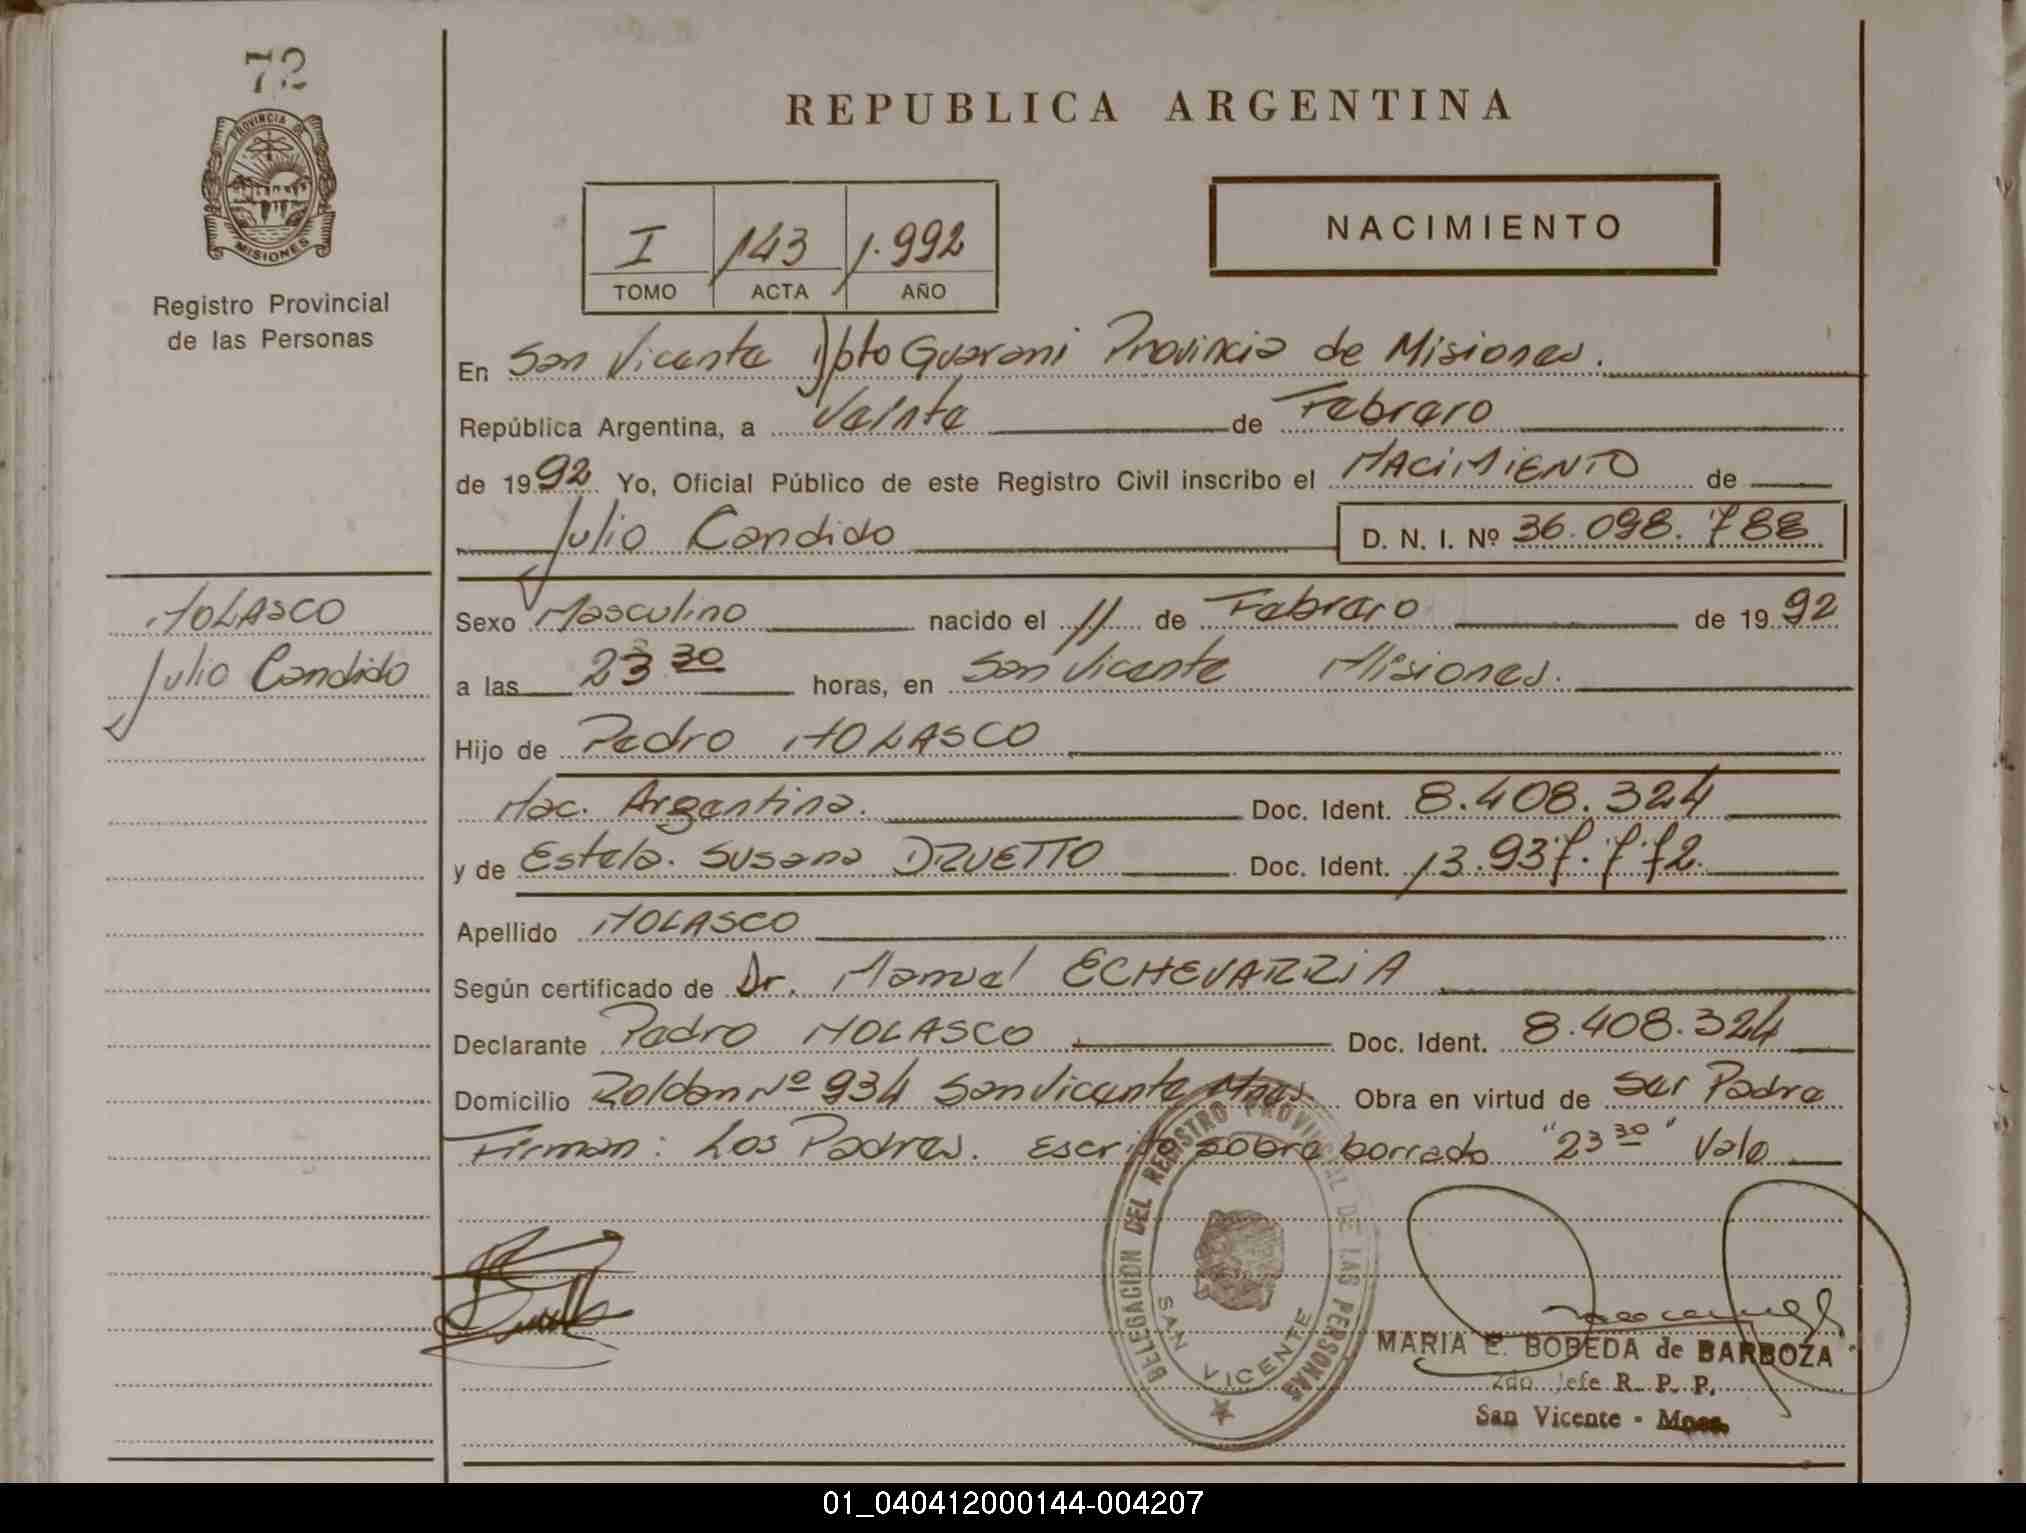 72
PROVINCIA DE
MISIONES
Registro Provincial
de las Personas
REPUBLICA ARGENTINA
I 143 1.992
TOMO ACTA AÑO
NACIMIENTO
En San Vicente Dpto Guarani Provincia de Misiones.
República Argentina, a Veinte de Febrero
de 1992 Yo, Oficial Público de este Registro Civil inscribo el NACIMIENTO de
Julio Candido D. N. I. Nº 36.098.788
NOLASCO
Julio Candido
Sexo Masculino nacido el 11 de Febrero de 1992
a las 23 30 horas, en San Vicente Misiones.
Hijo de Pedro NOLASCO
Nac. Argentina. Doc. Ident. 8.408.324
y de Estela Susana DRUETTO Doc. Ident. 13.937.772
Apellido NOLASCO
Según certificado de Dr. Manuel ECHEVARRIA
Declarante Pedro NOLASCO Doc. Ident. 8.408.324
Domicilio Roldan Nº 934 San Vicente Mnes Obra en virtud de ser Padre
Firman: Los Padres. Escrito sobre borrado "23 30" Vale
DELEGACION DEL REGISTRO PROVINCIAL DE LAS PERSONAS
SAN VICENTE
MARIA E. BOBEDA de BARBOZA
2do. Jefe R. P. P.
San Vicente - Mnes.
01_040412000144-004207